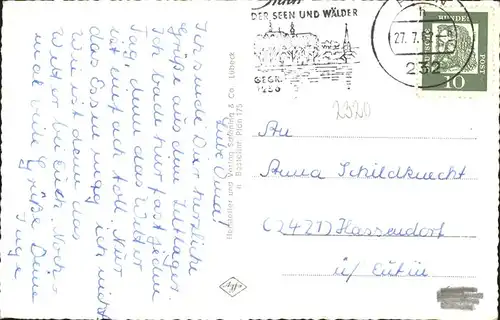 Liebe Oma!
Ich sende Dir herzliche
Grüße aus dem Zeltlager.
Ich bade hier fast jeden
Tag, denn das Wetter
ist einfach toll. Nur
das Essen mag ich nicht.
Wie ist denn das
Wetter bei Euch. Noch-
mal viele Grüße Deine
Inge
Hersteller und Verlag Schöning & Co., Lübeck
DER SEEN UND WÄLDER
GEGR.
1236
27. 7.
232
DEUTSCHE
BUNDES
POST
10
2320
An
Anna Schildknecht
(2421) Hassendorf
ü/ Eutin